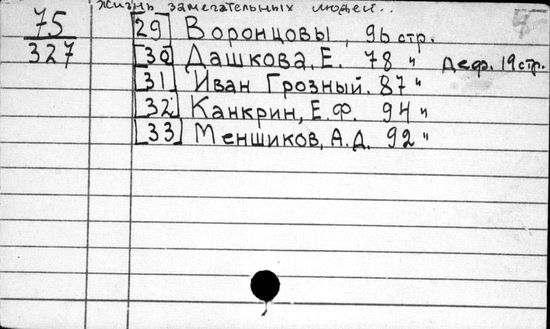 Жизнь замечательных людей..
75
327
[29] Воронцовы, 96 стр.
[30] Дашкова, Е. 78 " Деф. 19 стр.
[31] Иван Грозный. 87 "
[32] Канкрин, Е.Ф. 94 "
[33] Меншиков, А.Д. 92 "